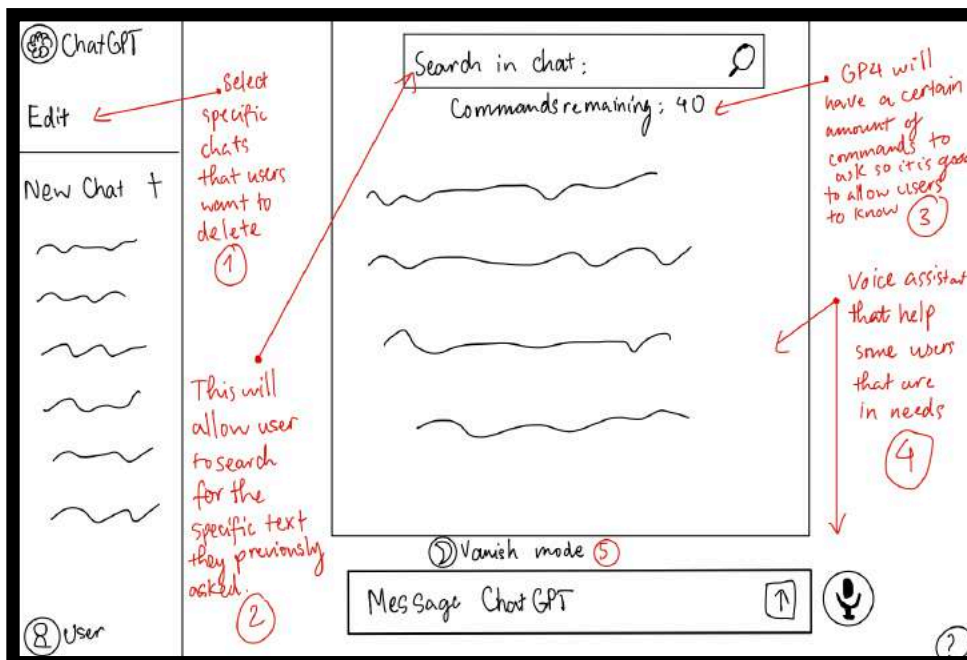 ChatGPT
Edit
New Chat +
User
Select
specific
chats
that users
want to
delete
1
This will
allow user
to search
for the
specific text
they previously
asked.
2
Search in chat:
Commands remaining: 40
Vanish mode 5
Message ChatGPT
GP4 will
have a certain
amount of
commands to
ask so it is good
to allow users
to know 3
Voice assistant
that help
some users
that are
in needs
4
?